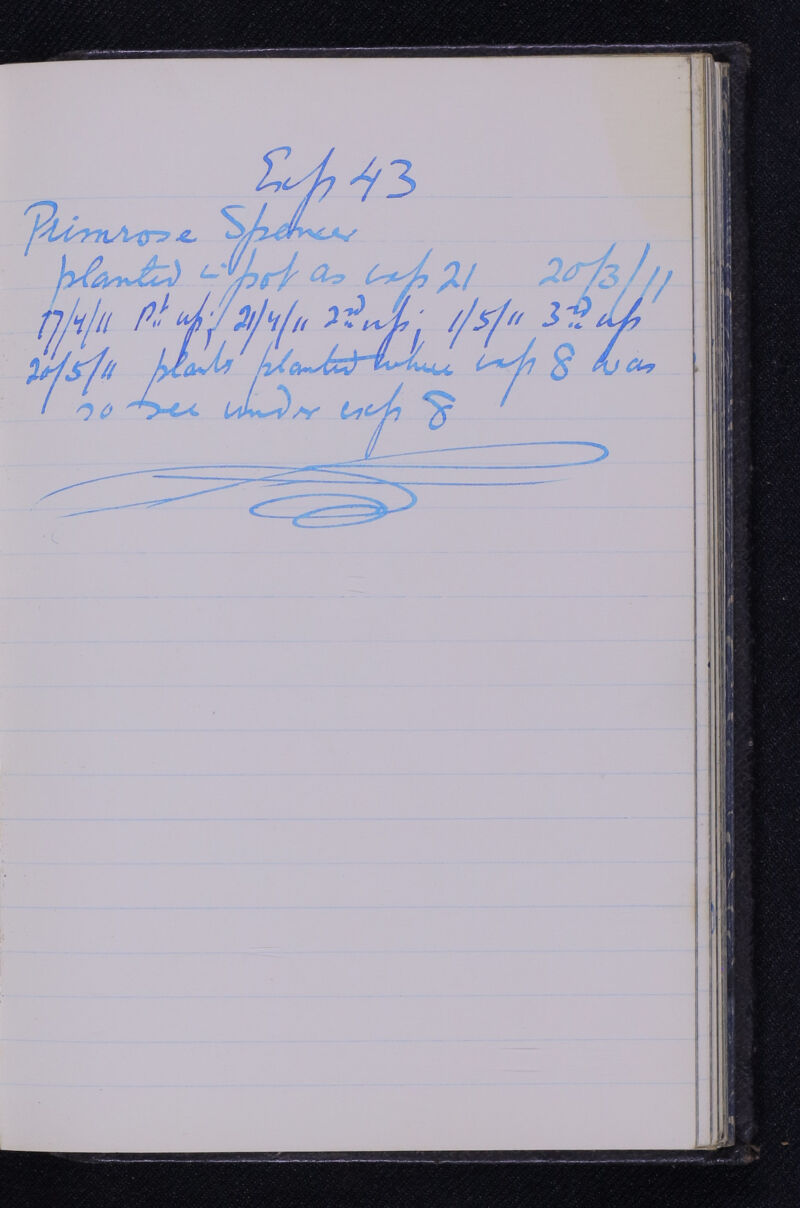 Exp 43
Primrose Spencer
planted in pot as exp 21 20/3/11
17/4/11 1st up; 21/4/11 2nd up; 1/5/11 3rd up
20/5/11 plants planted where exp 8 was
so see under exp 8